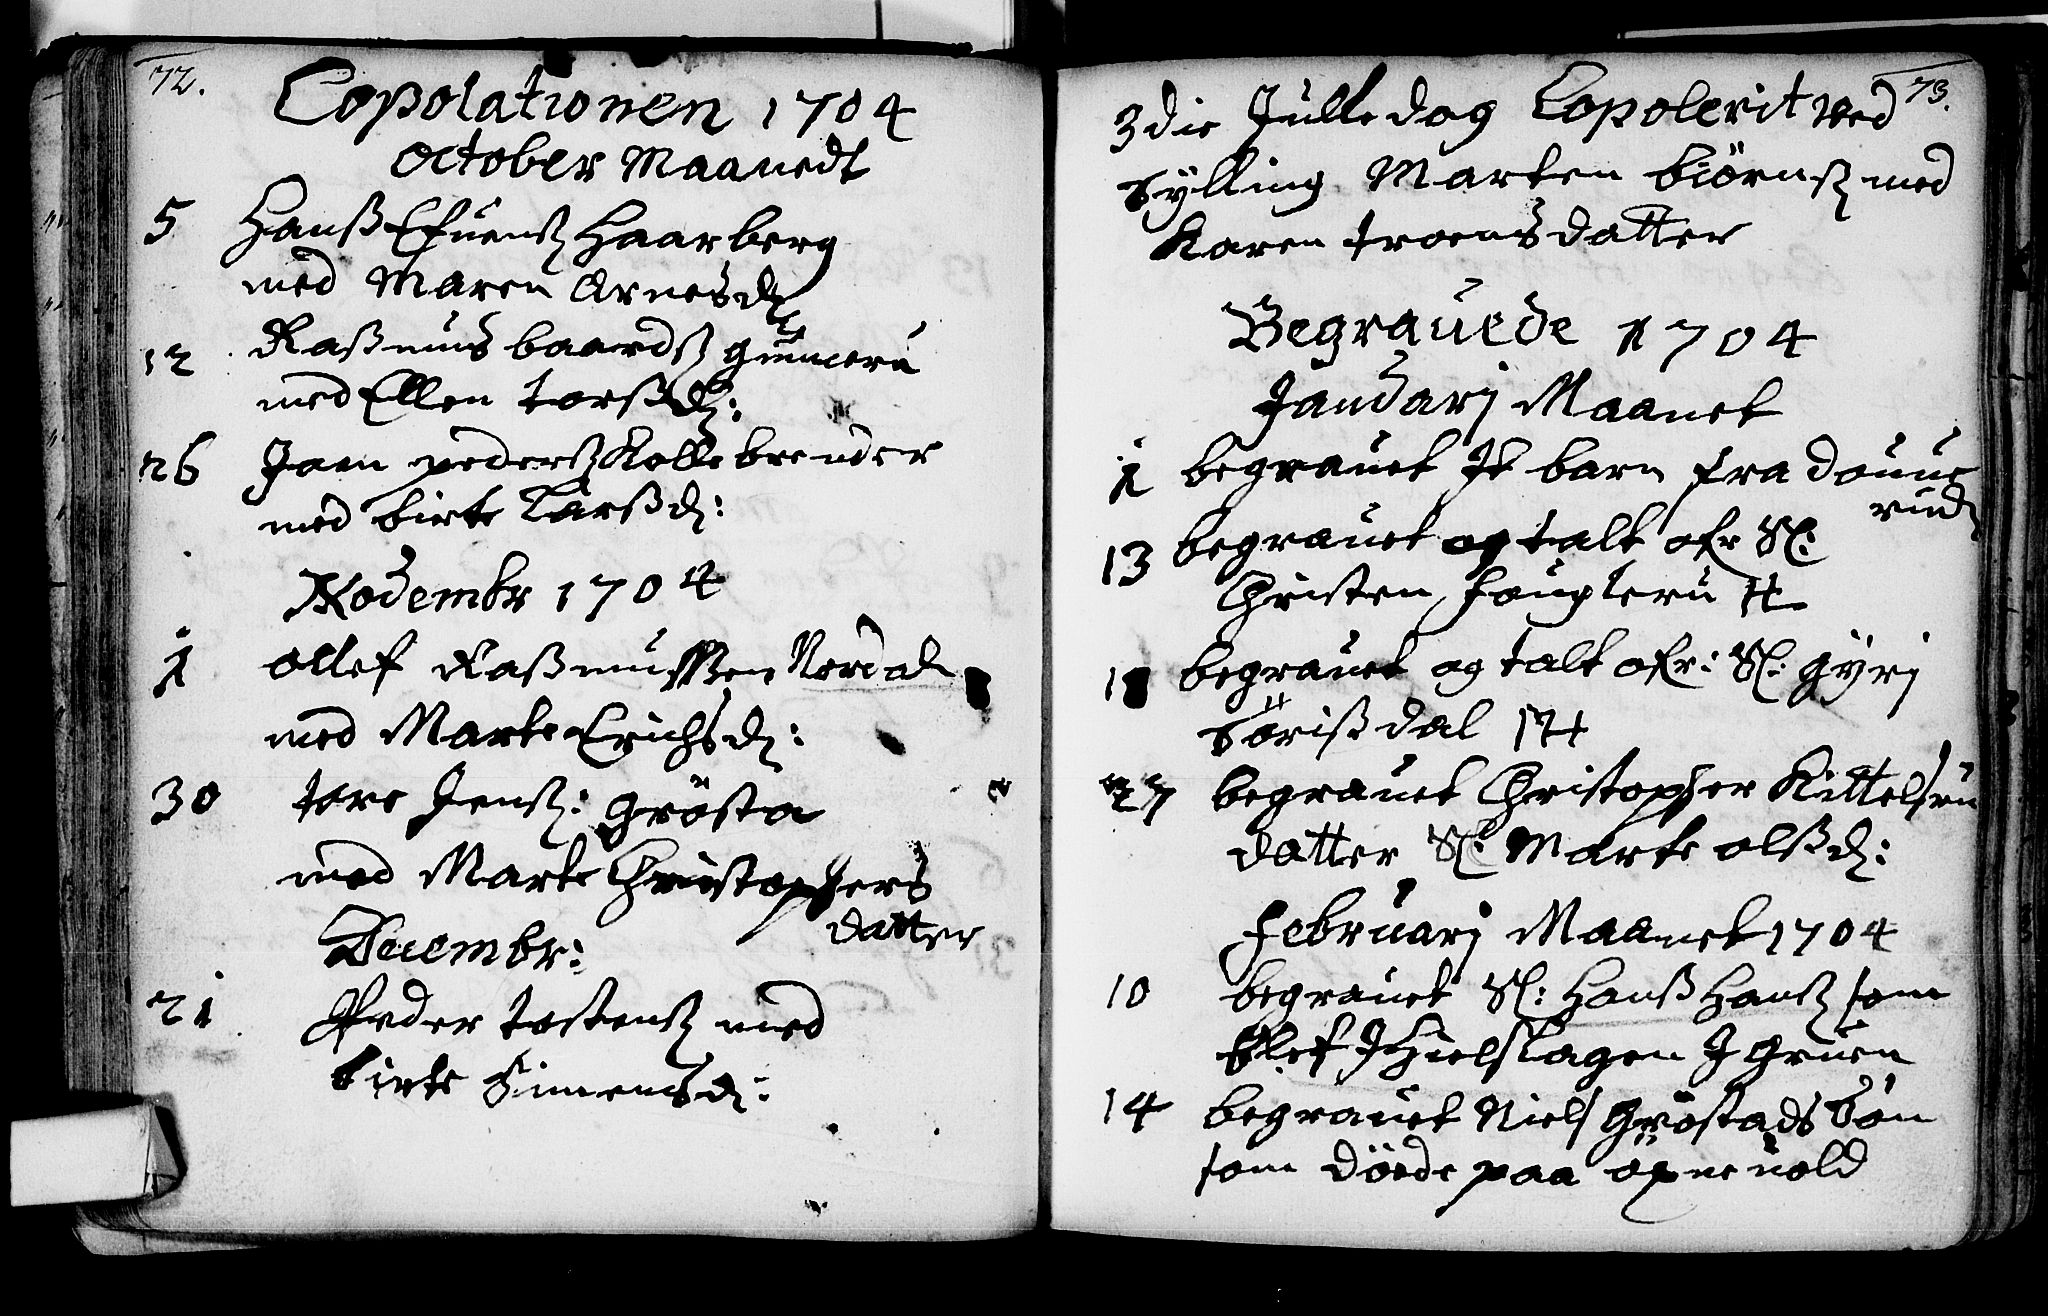 72.
Copolationen 1704
October Maanedt
5 Hanß Efuensß Haarberg
med Maren Arnesdʒ
12 Raßmus baardsß gunneru
med Ellen torßdʒ:
26 Joen pedersß Kollebrender
med birte Larßdʒ:
Novembr 1704
1 ollef Raßmussen Nordal
med Marte Erichsdʒ:
30 tore Jensß: grösta
med Marte Christophers
datter
Decembr:
21 Peder tostensß med
birte Simensdʒ:
73.
3die Julledag Copolerit ved
Sylling Marten biörnsß med
Karen troensdatter
Begrauede 1704
Januarj Maanet
1 begrauet It barn fra Douue
rudʒ
13 begrauet og talt ofr Sl:
Christen fougleru
begrauet og talt ofr: Sl: gyrj
Sörißdal
27 begrauet Christopher Kittelsru
datter Sl: Marte olßdʒ:
Februarj Maanet 1704
10 begrauet Sl: Hanß Hansß som
blef Ihielslagen I Gruen
14 begrauet Niels Gröstads Sön
som döede paa